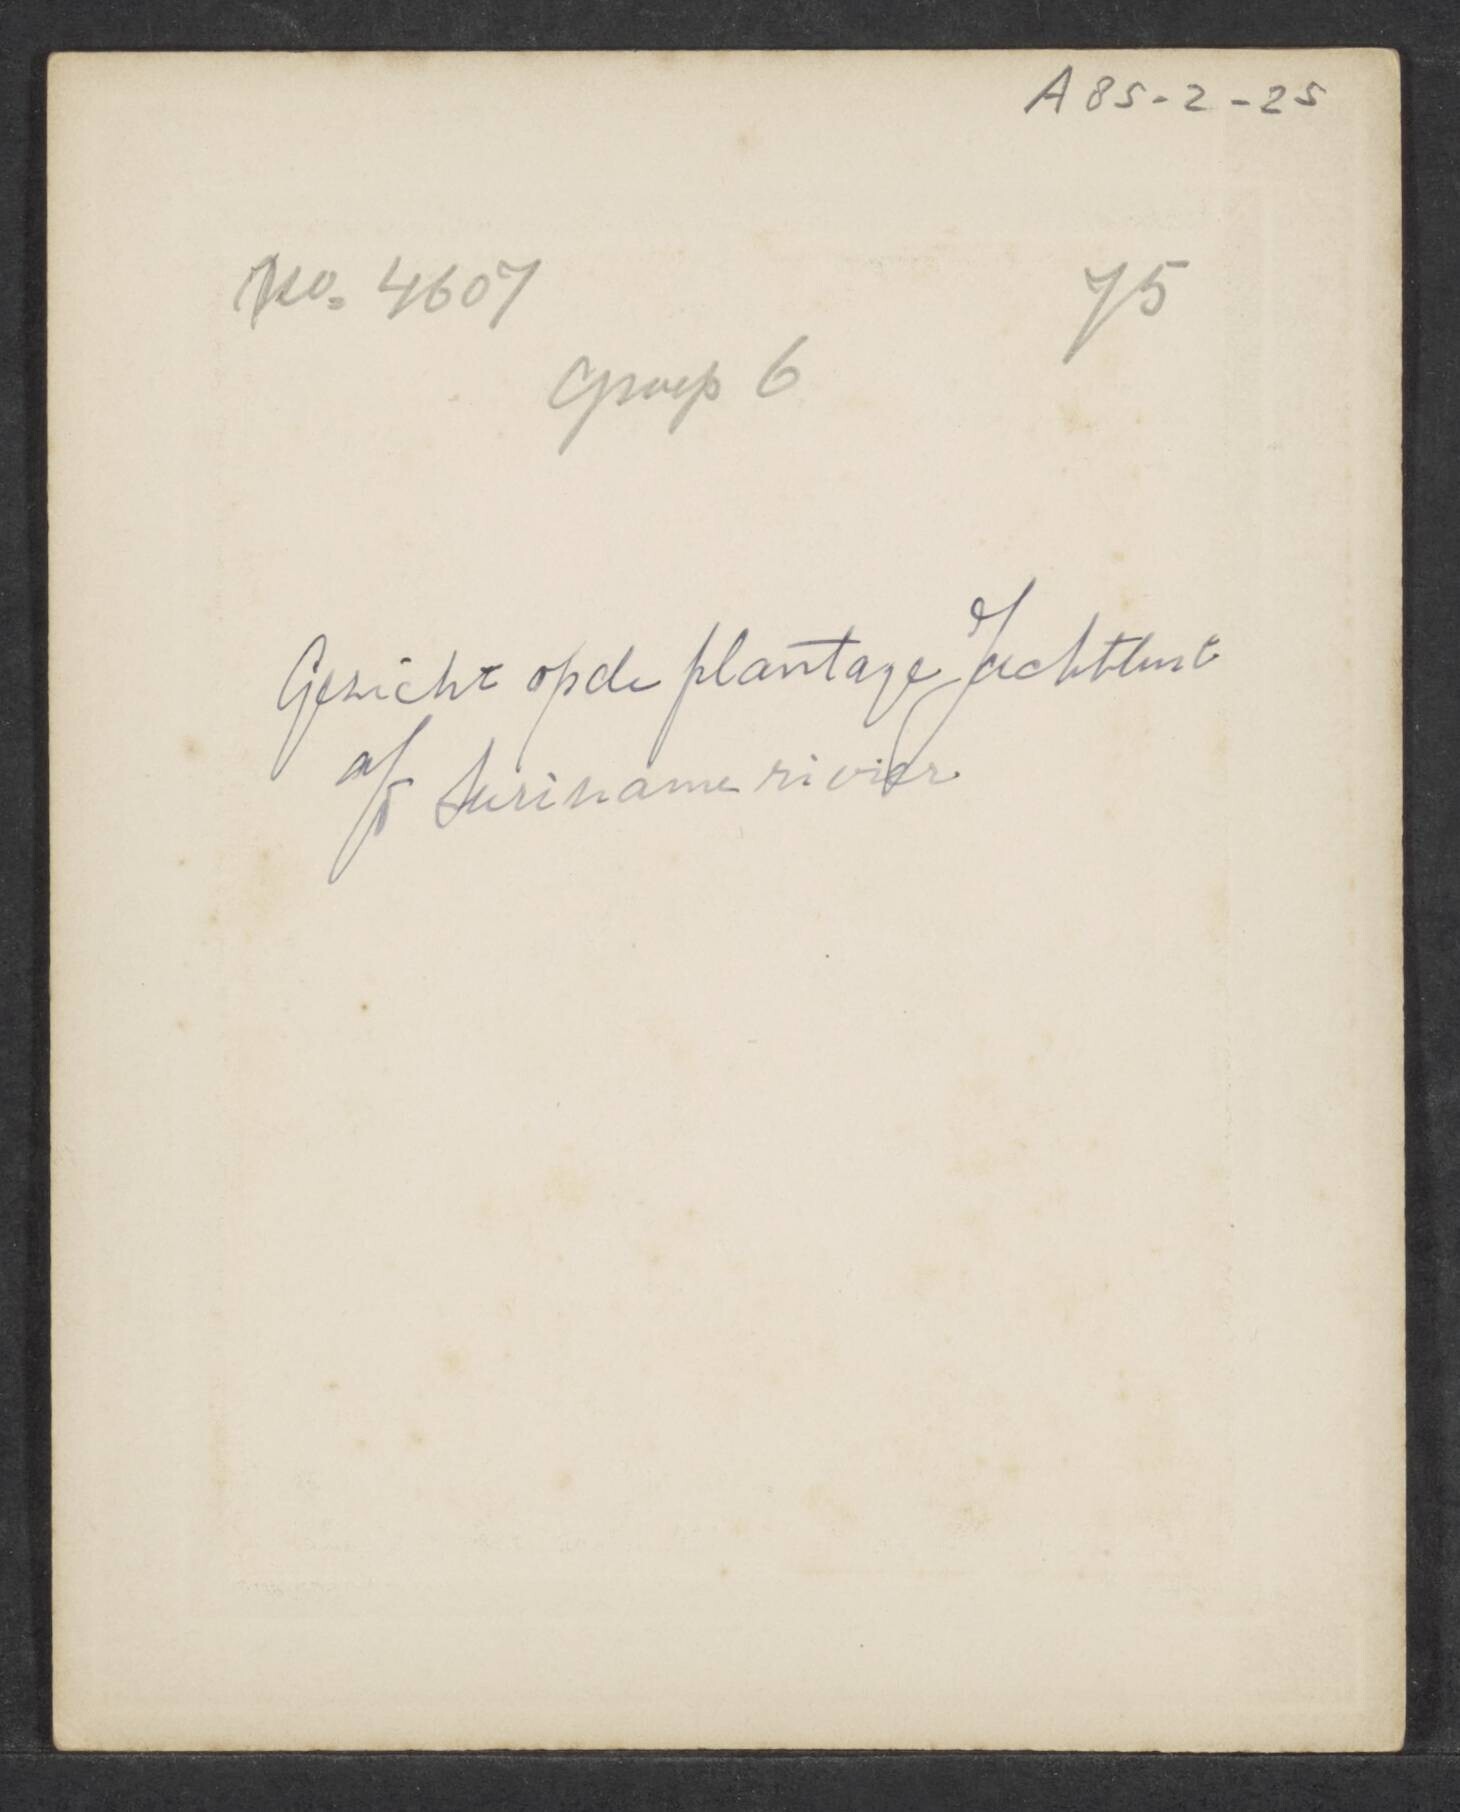 A85-2-25
No. 4607 75
Groep 6
Gezicht op de plantage Jachtlust
a/d Suriname rivier